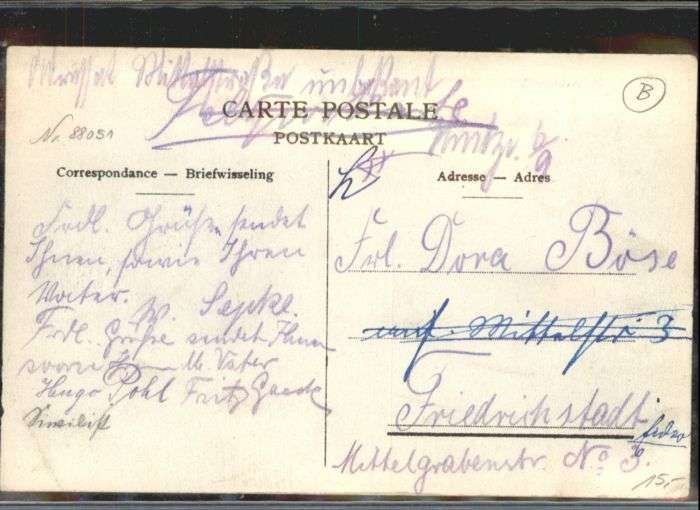 Mittelstraße unbekannt
CARTE POSTALE
POSTKAART
B
Nr. 88051
Correspondance — Briefwisseling
Adresse — Adres
Frdl. Grüße sendet
Ihnen, sowie Ihren
Vater.
W. Sepke.
Frdl. Grüße sendet Ihnen
u. Vater
Hugo Pohl Fritz Gaede
Frl. Dora Böse
Mittelstr 3
Friedrichstadt
Mittelgrabenstr. No 3.
15,-